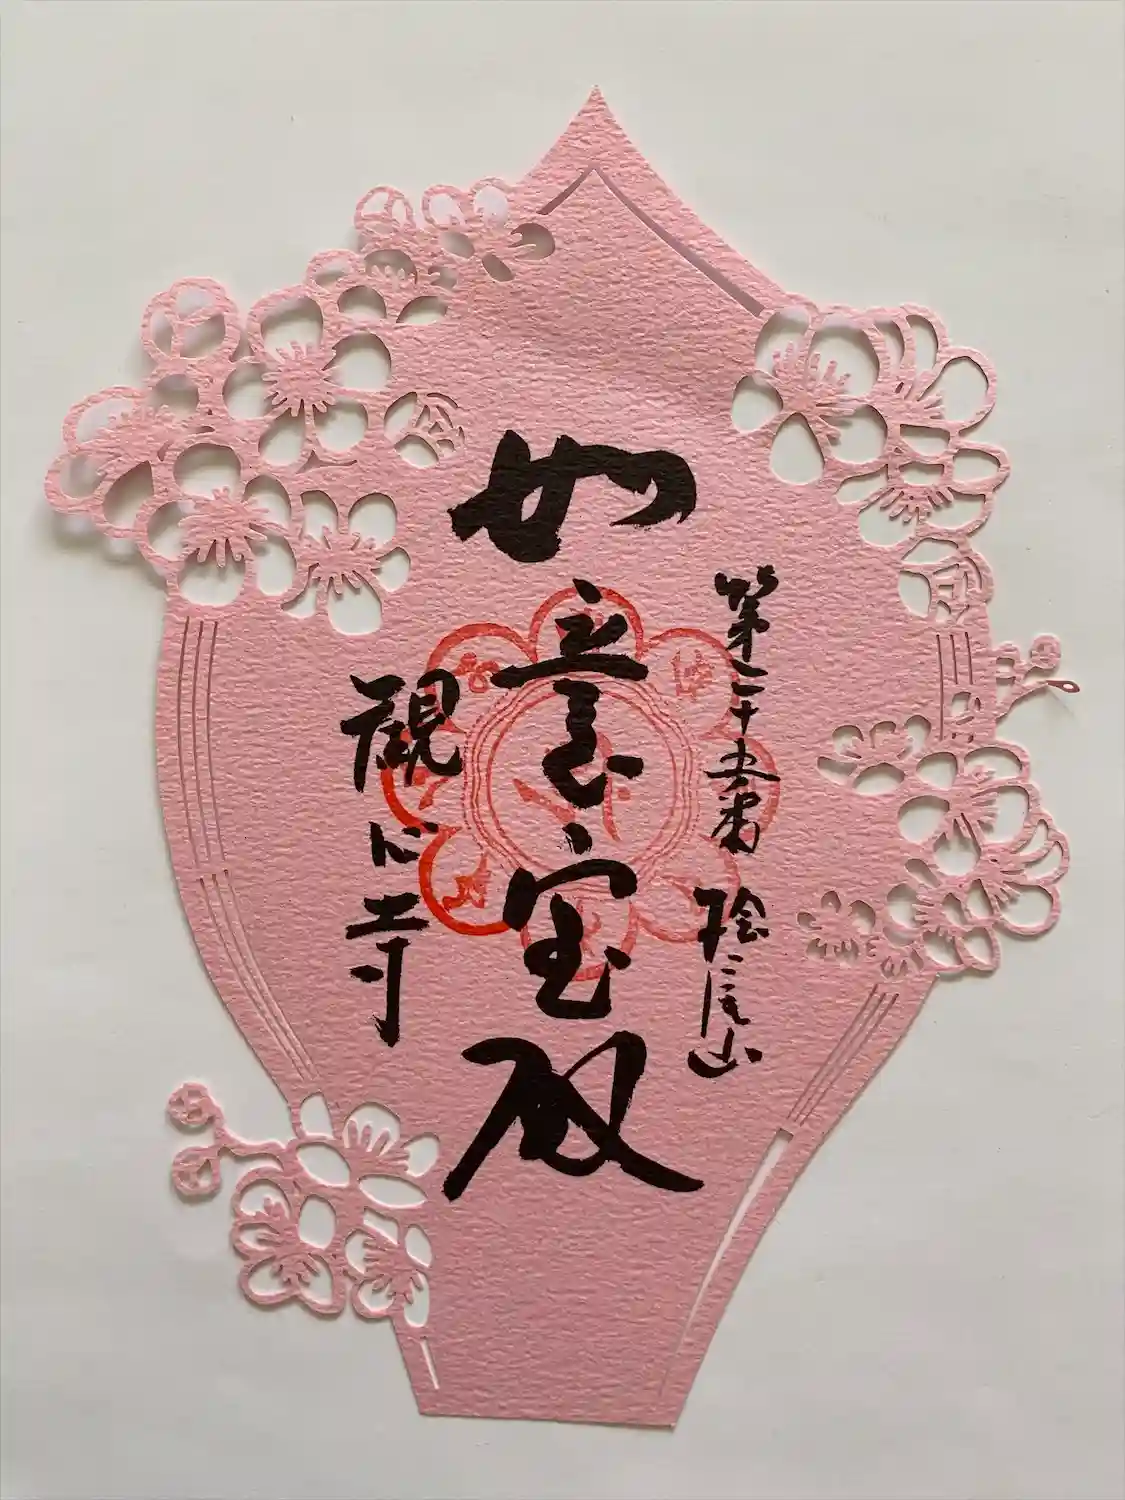 第二十五番 桧尾山
如意宝殿
観心寺